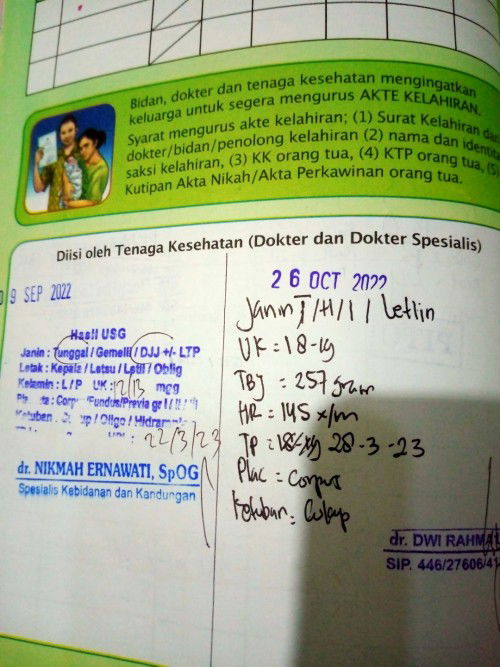 Bidan, dokter dan tenaga kesehatan mengingatkan
keluarga untuk segera mengurus AKTE KELAHIRAN.
Syarat mengurus akte kelahiran; (1) Surat Kelahiran
dokter/bidan/penolong kelahiran (2) nama dan
saksi kelahiran, (3) KK orang tua, (4) KTP orang tua, (5)
Kutipan Akta Nikah/Akta Perkawinan orang tua.
Diisi oleh Tenaga Kesehatan (Dokter dan Dokter Spesialis)
9 SEP 2022
Hasil USG
Janin : Tunggal / Gemelli / DJJ +/- LTP
Letak : Kepala / Letsu / Letli / Oblig
Kelamin : L / P UK : 12/13 mgg
/Fundus/Previa gr I / II /
/ Oligo /
22/3/23
dr. NIKMAH ERNAWATI, SpOG
Spesialis Kebidanan dan Kandungan
26 OCT 2022
Janin T/H/I / Letlin
UK = 18-19
TBJ = 257 gram
HR = 145 x/m
TP = 28-3-23
Plac = Corpus
Ketuban = Cukup
dr. DWI
SIP. 446/27606/